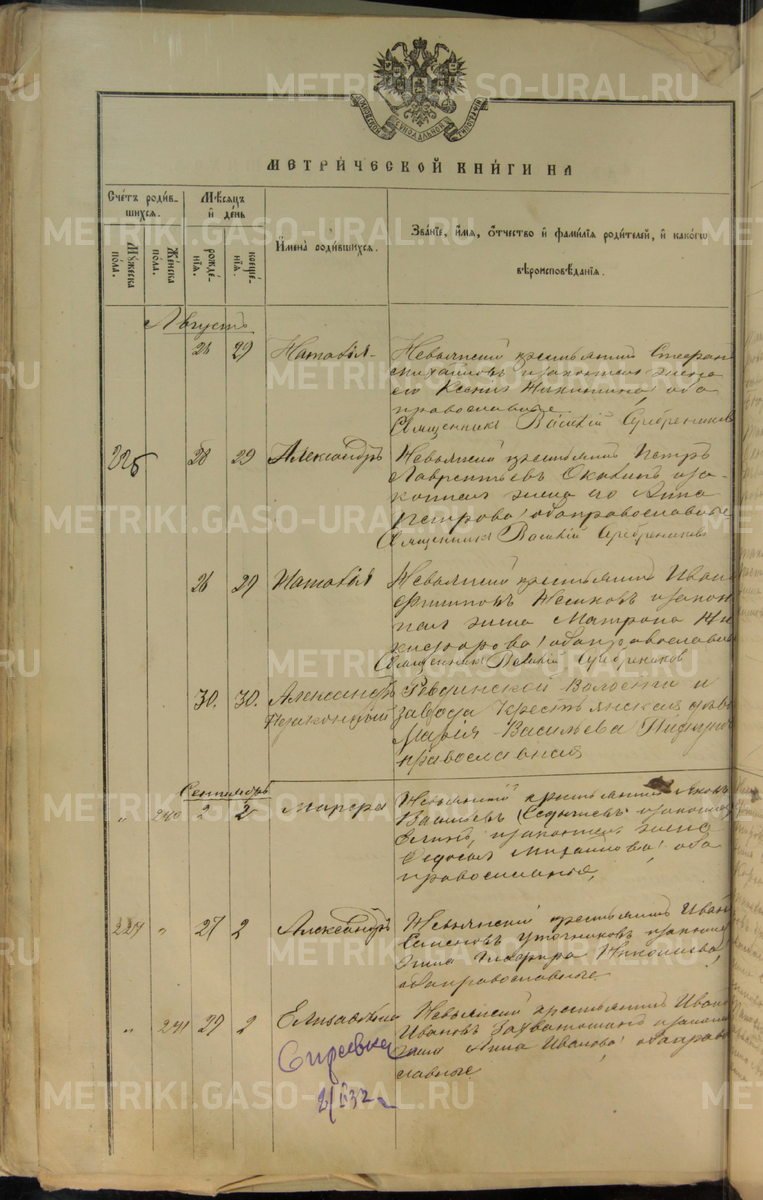 МЕТРИ́ЧЕСКОЙ КНИ́ГИ НА
Сче́тъ роди́в-
шихся.
Мѣ́сяцъ
и҆ де́нь
Му́жеска
по́ла.
Же́нска
по́ла.
рожде́-
нїя.
креще́-
нїя.
И҆мена̀ роди́вшихся.
Зва́нїе, и҆́мя, ѻ҆́тчество и҆ фами́лїя роди́телей, и҆ како́гѡ
вѣроисповѣ́данїя.
Августъ
28 29 Наталія Невьянскій крестьянинъ Стефанъ
Михайловъ и законная жена
его Ксенія Никитина, оба
православные
Священникъ Василій Серебрениковъ
226 28 29 Александръ Невьянскій крестьянинъ Петръ
Лаврентьевъ и за-
конная жена его Анна
Петрова, оба православные
Священникъ Василій Серебрениковъ
26 29 Наталія Невьянскій крестьянинъ Иванъ
Филиповъ и закон
ная жена Матрона Ни
кифорова, оба православные
Священникъ Василій Серебрениковъ
30. 30. Александръ Ревдинской волости и
Незаконный завода крестьянская дѣвица
Марія Васильева
православная
Сентябрь
„ 240 2 2 Марѳа Невьянскій крестьянинъ Яковъ
Васильевъ
и законная жена
Ѳедосья Михаилова, оба
православные
227 „ 27 2 Александръ Невьянскій крестьянинъ Иванъ
Семеновъ Уточниковъ и законная
жена Глафира Николаева,
оба православные
„ 241 29 2 Елизавета Невьянскій крестьянинъ Иванъ
Ивановъ и законная
жена Анна Ивановна, оба право
славные
METRIKI.GASO-URAL.RU